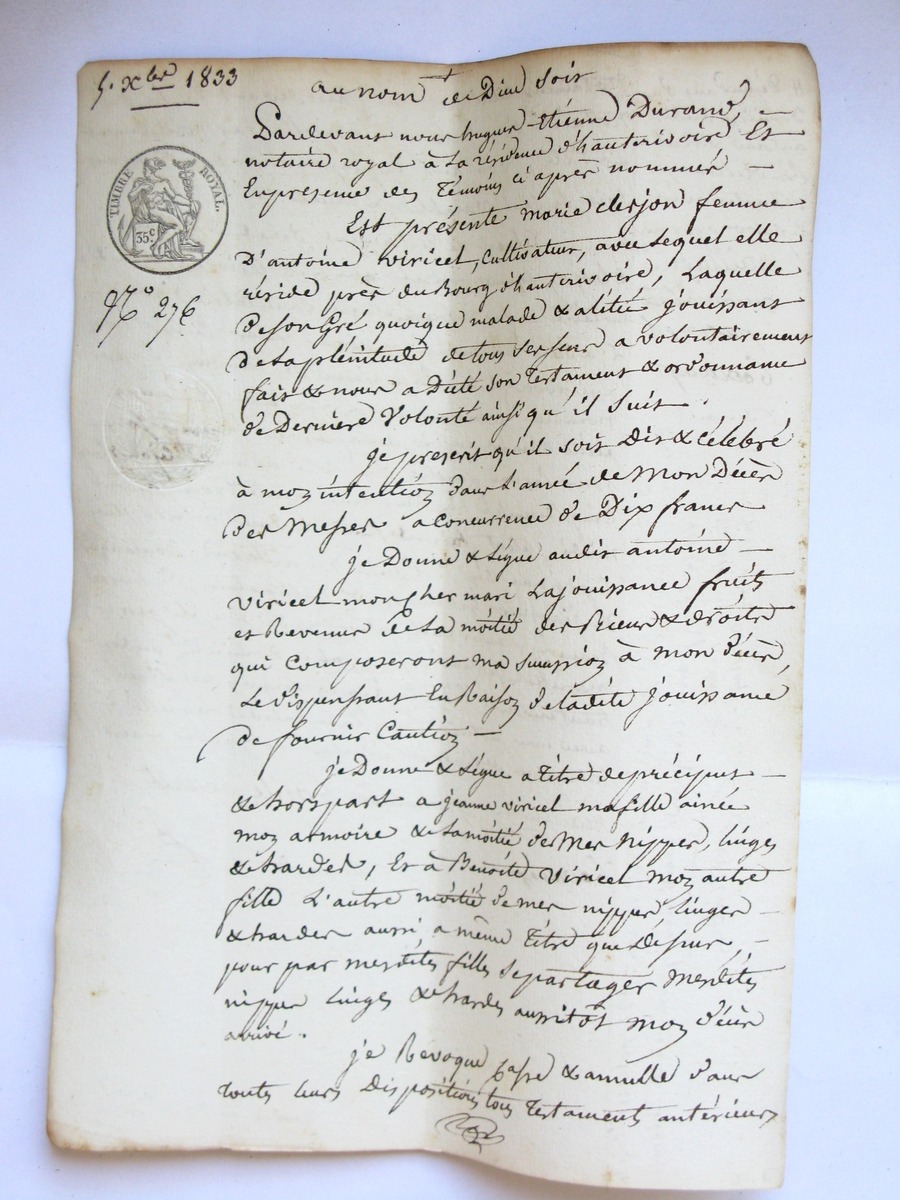 5. Xbre 1833
au nom de Dieu soit
Pardevant nous hugues-étienne Durand,
notaire royal à la résidence d'hauterivoire, Et
En presence des Témoins ci après nommés —
TIMBRE ROYAL.
35c.
Est présente marie clerjon femme
D'antoine viricel, cultivateur, avec Lequel elle
réside près du Bourg d'hauterivoire, Laquelle
N.o 276
de Son Gré quoique malade & alitée jouissant
de la plénitude de tous ses sens a volontairement
fait & nous a Dicté son Testament & ordonnance
de Derniere Volonté ainsi qu'il suit.
je prescrit qu'il soit Dit & célébré
à mon intention dans L'année de Mon Décès
Des Messes a Concurrence de Dix francs
je Donne & Légue audit antoine —
viricel mon cher mari La jouissance fruits
et Revenus de la moitié des Biens & droits
qui composeront ma succession à mon décès,
Le dispensant En Raison de ladite jouissance
de fournir Caution —
je Donne & Légue a titre de préciput —
& hors part a jeanne viricel ma fille ainée
mon armoire & la moitié de Mes nippes, linges
& hardes, Et à Benoite Viricel mon autre
fille L'autre moitié de mes nippes linges —
& hardes aussi a même Titre que dessus, —
pour par mesdites filles se partager Mesdites
nippes linges & hardes aussitôt mon décès
arrivé.
je Revoque Casse & annulle dans
toutes leurs Dispositions tous Testaments antérieurs